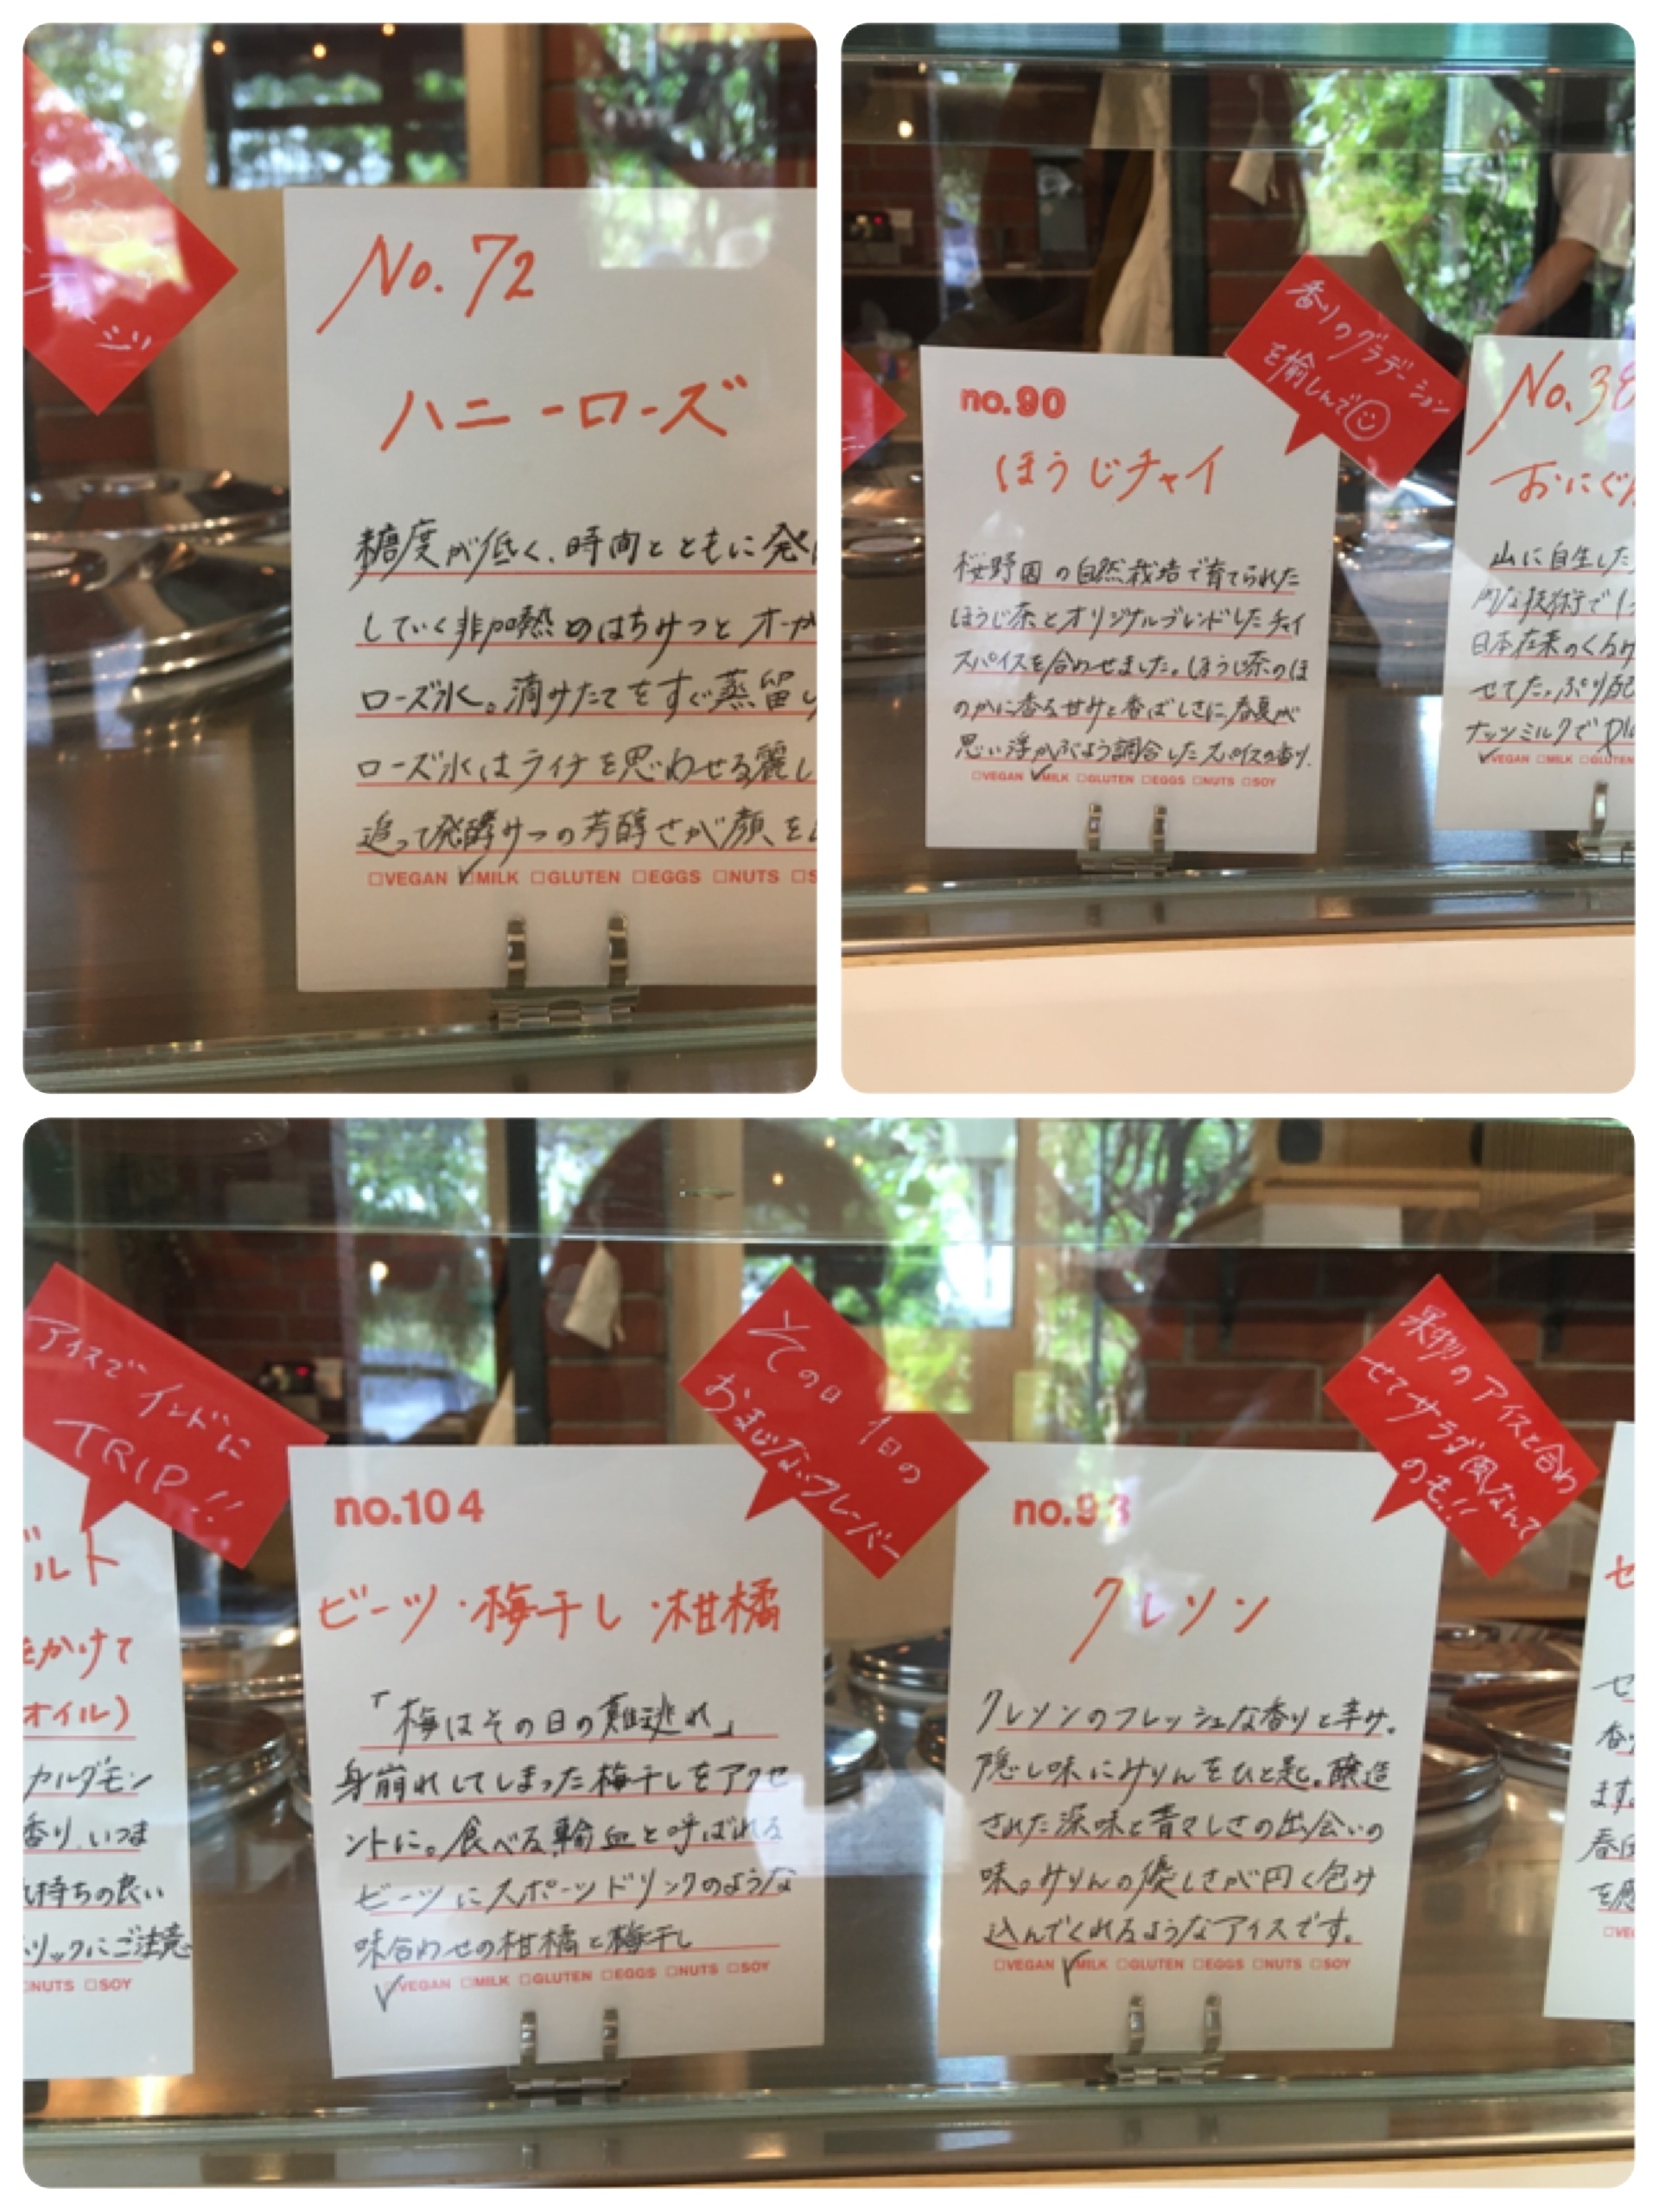 ージ
No. 72
ハニーローズ
糖度が低く、時間とともに発
していく非加熱のはちみつとオーガ
ローズ水。滴みたてをすぐ蒸留し
ローズ水はライチを思わせる麗し
追って発酵みつの芳醇さが顔を
VEGAN MILK GLUTEN EGGS NUTS S
香りのグラデーション
を愉しんで
no.90
ほうじチャイ
桜野園の自然栽培で育てられた
ほうじ茶とオリジナルブレンドしたチャイ
スパイスを合わせました。ほうじ茶のほ
のかに香る甘みと香ばしさに、春夏が
思い浮かぶよう調合したスパイスの香り。
VEGAN MILK GLUTEN EGGS NUTS SOY
No.38
おにぐ
山に自生した
的な技術で1つ
日本在来のくるみ
せてた。ぷり配
ナッツミルクで
VEGAN MILK GLUTEN
アイスでインドに
TRIP!!
ルト
をかけて
オイル)
カルダモン
香り、いつま
気持ちの良い
リックにご注意
NUTS SOY
その日1日の
おまじないフレーバー
no.104
ビーツ・梅干し・柑橘
「梅はその日の難逃れ」
身崩れしてしまった梅干しをアクセ
ントに。食べる輸血と呼ばれる
ビーツにスポーツドリンクのような
味合わせの柑橘と梅干し
VEGAN MILK GLUTEN EGGS NUTS SOY
果物のアイスと合わ
せてサラダ風なんて
のも!!
no.93
クレソン
クレソンのフレッシュな香りと辛み。
隠し味にみりんをひと匙。醸造
された深味と青々しさの出会いの
味。みりんの優しさが円く包み
込んでくれるようなアイスです。
VEGAN MILK GLUTEN EGGS NUTS SOY
セ
セ
香り
ます。
VE